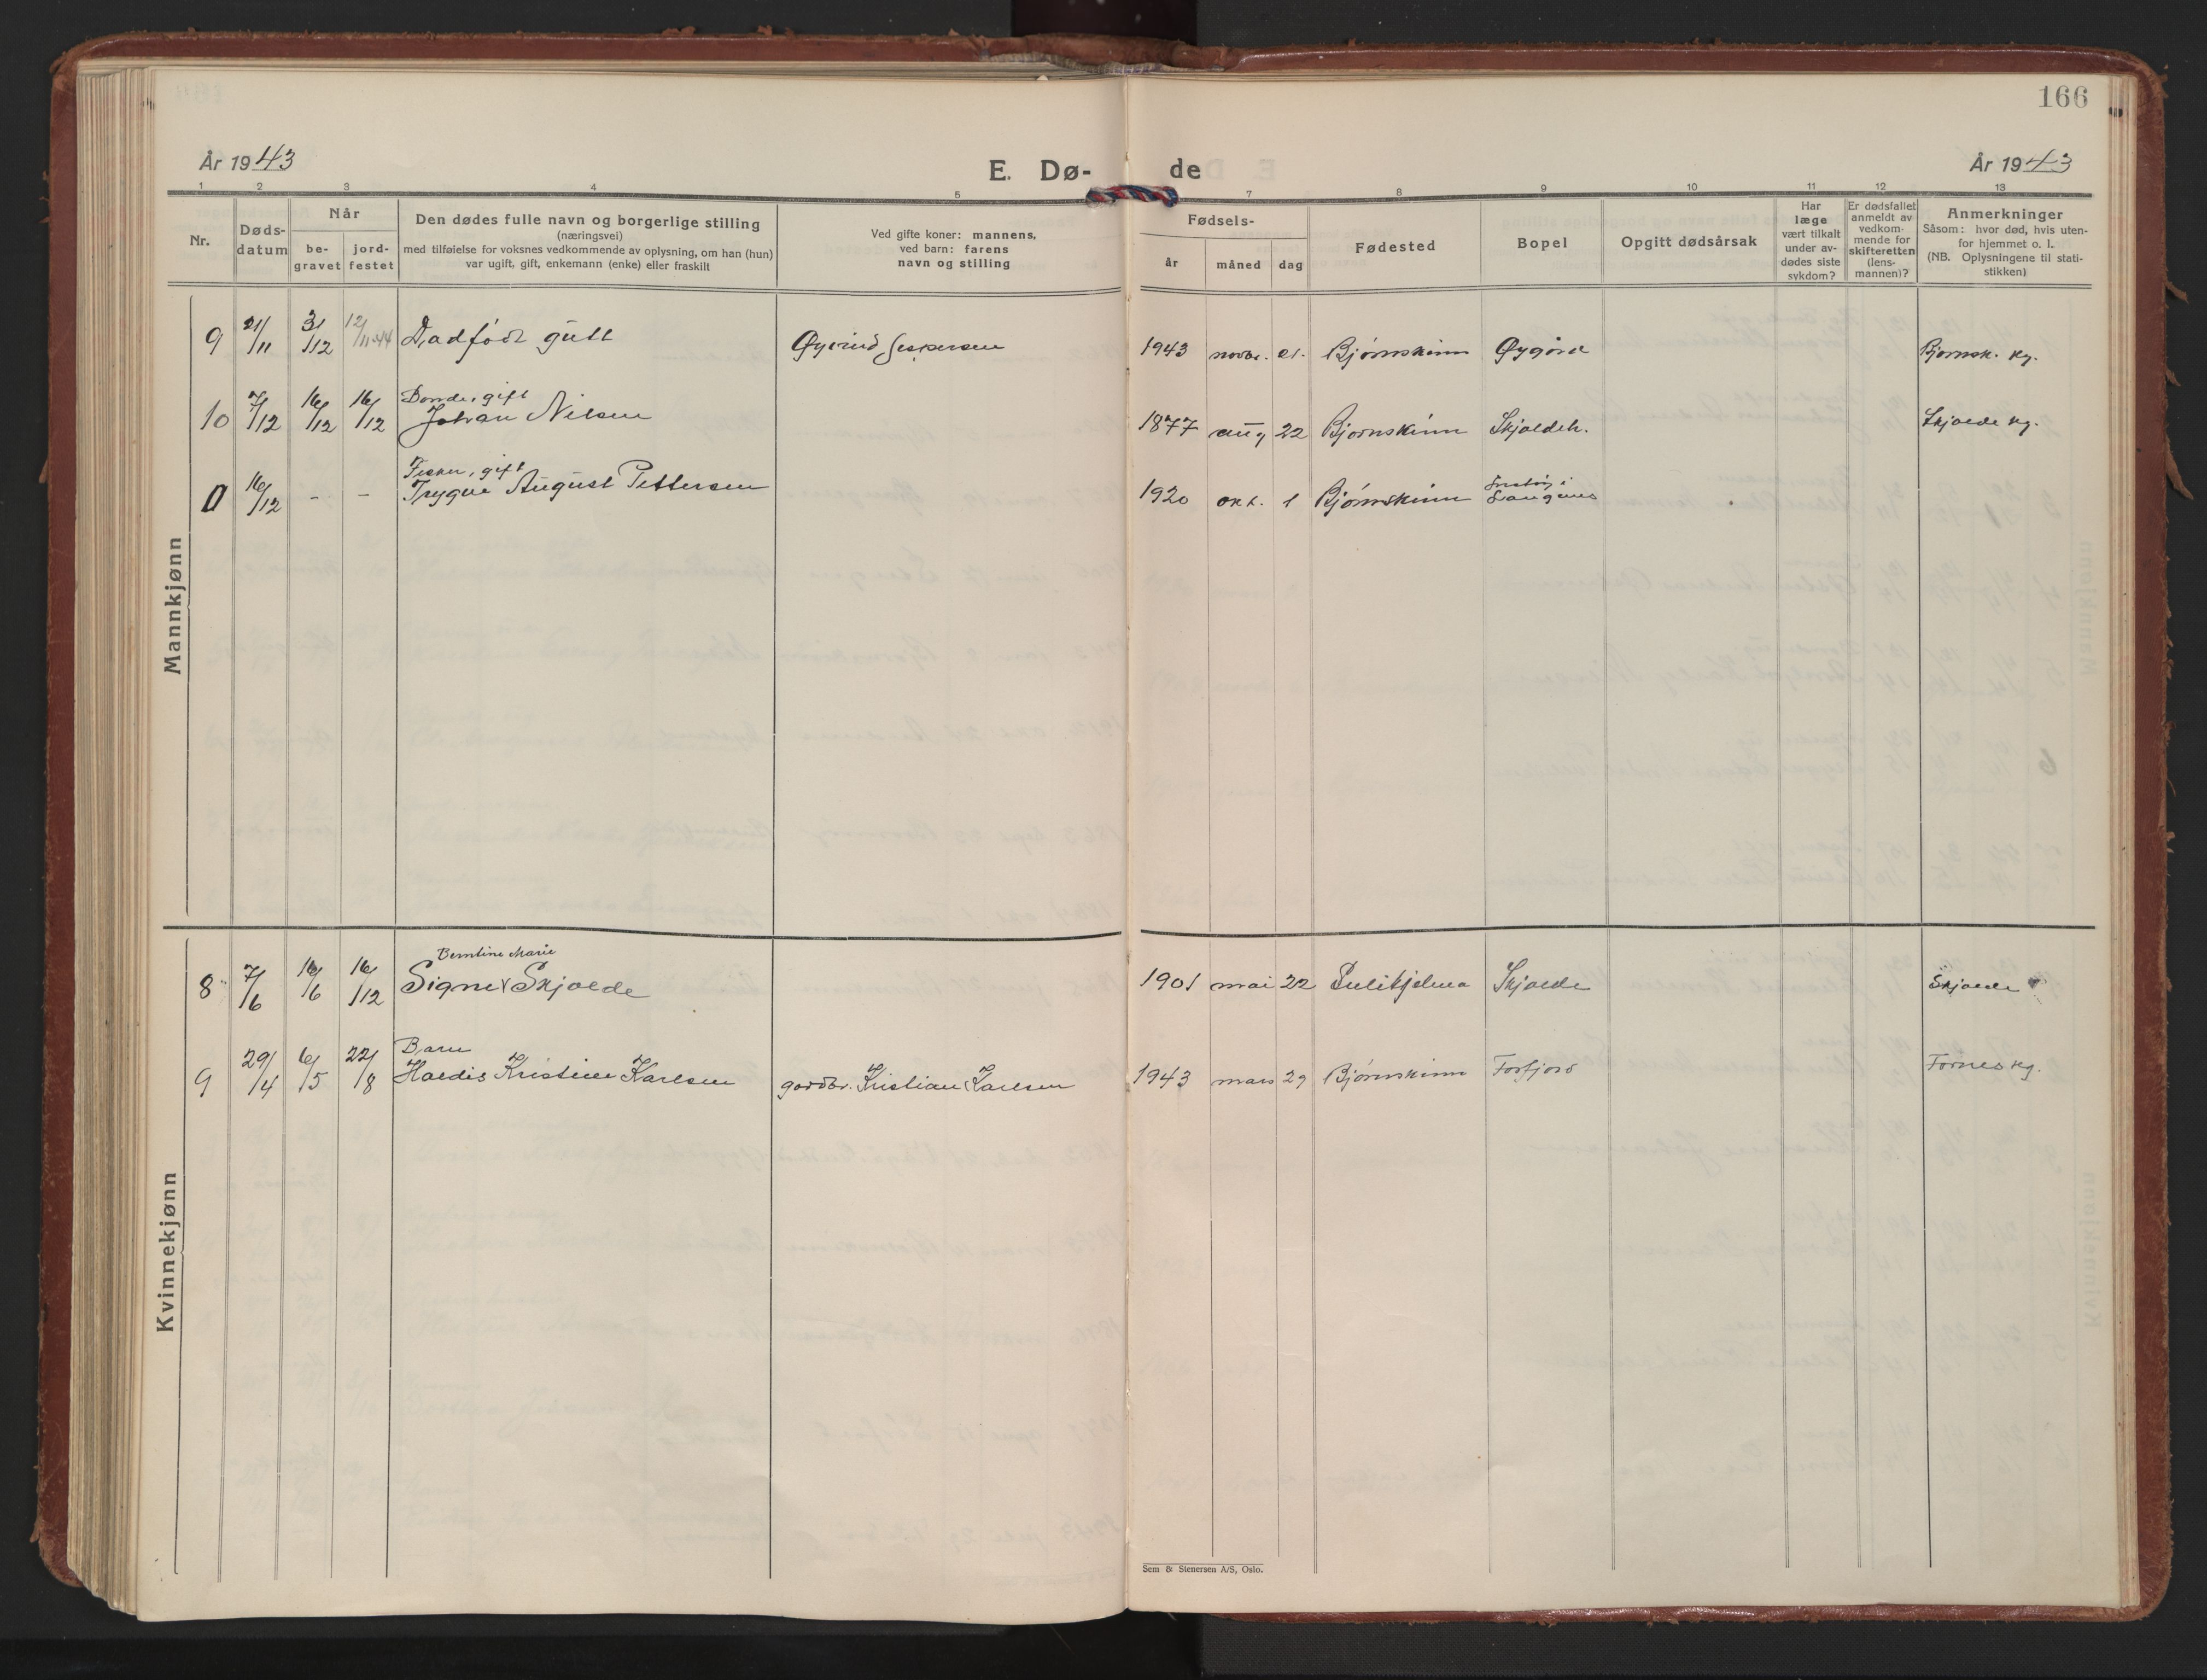 166
År 1943
E. Dø-
de
År 1943
1 2 3 4 5 7 8 9 10 11 12 13
Nr.
Døds-
datum
Når
be-
gravet
jord-
festet
Den dødes fulle navn og borgerlige stilling
(næringsvei)
med tilføielse for voksnes vedkommende av oplysning, om han (hun)
var ugift, gift, enkemann (enke) eller fraskilt
Ved gifte koner: mannens,
ved barn: farens
navn og stilling
Fødsels-
år måned dag
Fødested
Bopel
Opgitt dødsårsak
Har
læge
vært tilkalt
under av-
dødes siste
sykdom?
Er dødsfallet
anmeldt av
vedkom-
mende for
skifteretten
(lens-
mannen)?
Anmerkninger
Såsom: hvor død, hvis uten-
for hjemmet o. l.
(NB. Oplysningene til stati-
stikken)
Mannkjønn
9 21/11 31/12 12/11-44 Dødfødt gutt Øyvind Jespersen 1943 novbr. 21. Bjørnskinn Øygård Bjørnsk. kg.
Bonde, gift
10 7/12 16/12 16/12 Johan Nilsen 1877 aug 22 Bjørnskinn Skjoldeh. Skjolde kg.
Fisker, gift
0 16/12 - - Trygve August Pettersen 1920 okt. 1 Bjørnskinn Langenes
Kvinnekjønn
Berntine Marie
8 7/6 16/6 16/12 Signe V Skjolde 1901 mai 22 Sulitjelma Skjolde Skjolde
Barn
9 29/4 6/5 22/8 Haldis Kristine Karlsen gårdbr. Kristian Karlsen 1943 mars 29 Bjørnskinn Forfjord Fornes kg.
Sem & Stenersen A/S, Oslo.